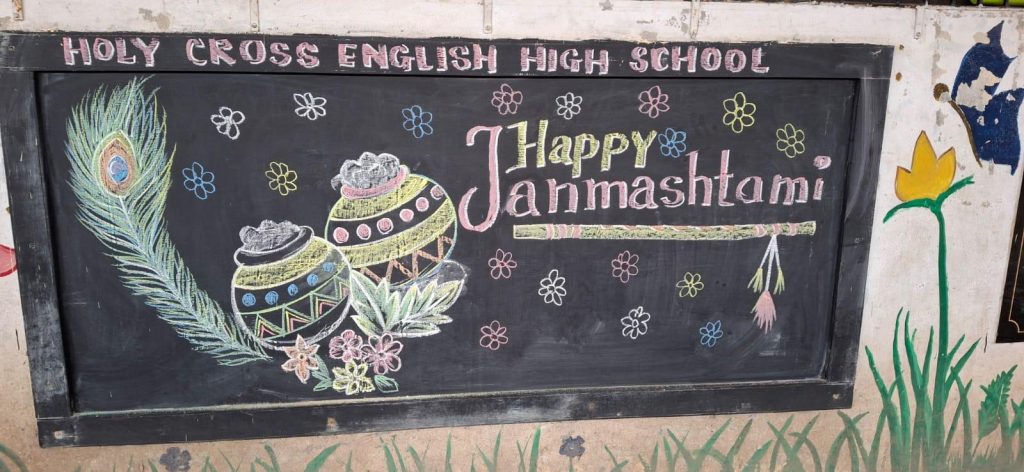 HOLY CROSS ENGLISH HIGH SCHOOL
Happy
Janmashtami